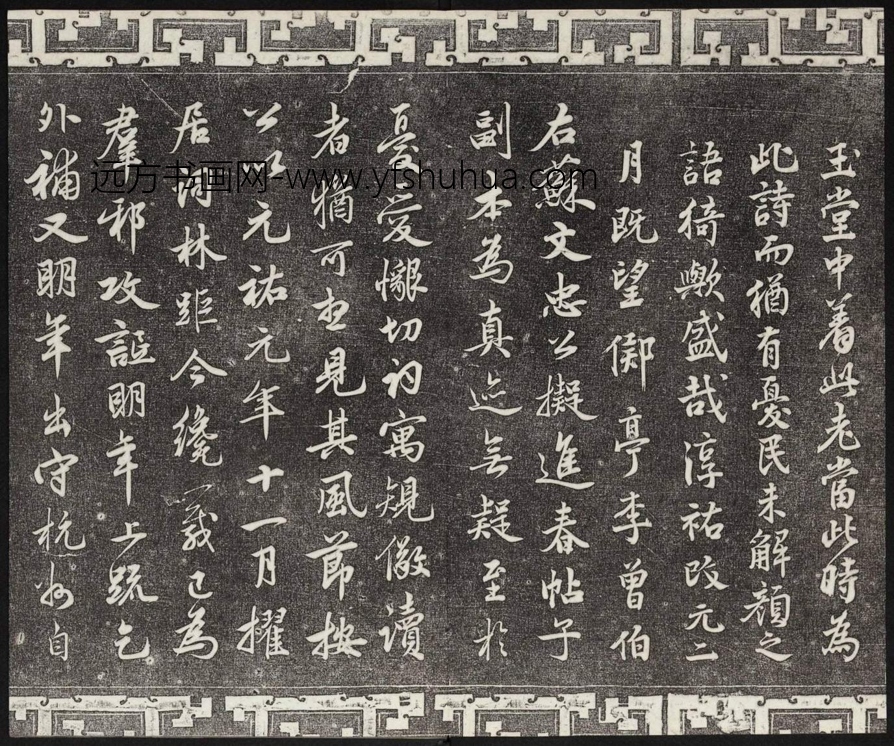 玉堂中着此老當此時為
此詩而猶有憂民未解顏之
語猗歟盛哉淳祐改元二
月既望鄮亭李曾伯
右蘇文忠公擬進春帖子
副本為真迹無疑至於
憂愛懇切初寓規儆讀
者猶可想見其風節按
公以元祐元年十一月擢
居詞林距今纔一歲已為
羣邪攻詆明年上疏乞
外補又明年出守杭州自
远方书画网-www.yfshuhua.com